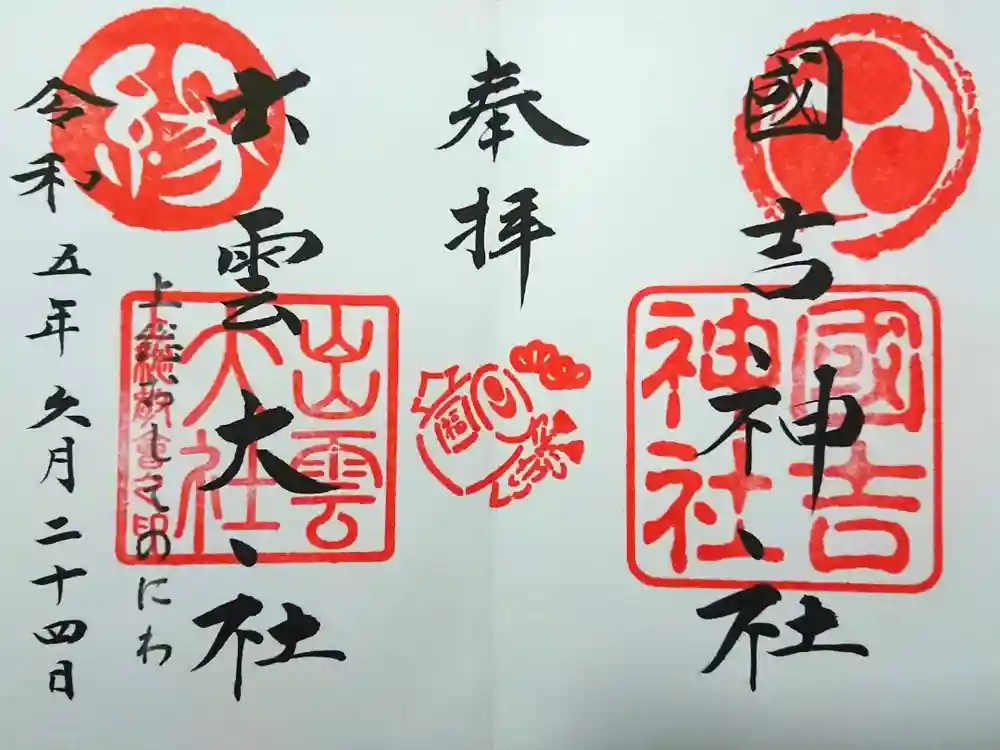 國吉神社
國吉
神社
奉拝
福
縁
出雲大社
出雲
大社
上総教會之印
のにわ
令和五年六月二十四日